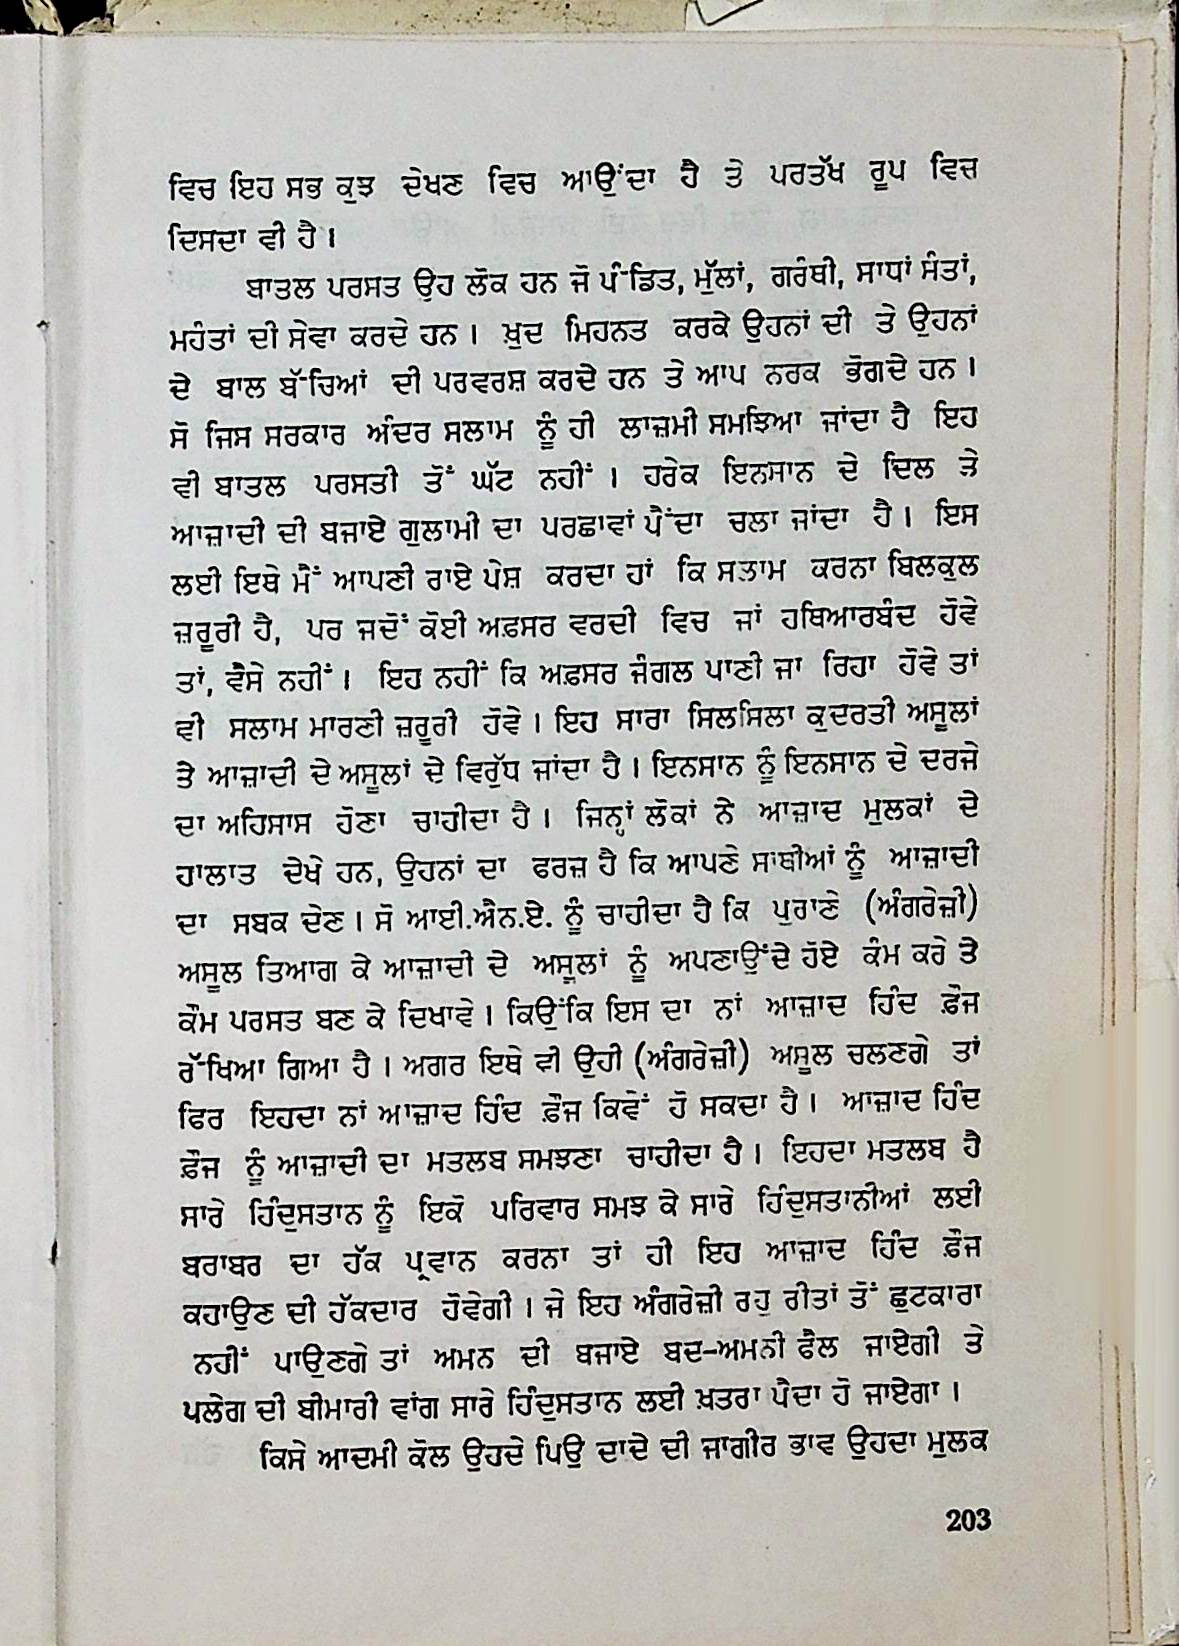 ਵਿਚ ਇਹ ਸਭ ਕੁਝ ਦੇਖਣ ਵਿਚ ਆਉਂਦਾ ਹੈ ਤੇ ਪਰਤੱਖ ਰੂਪ ਵਿਚ
ਦਿਸਦਾ ਵੀ ਹੈ।
ਬਾਤਲ ਪਰਸਤ ਉਹ ਲੋਕ ਹਨ ਜੋ ਪੰਡਿਤ, ਮੁੱਲਾਂ, ਗਰੰਥੀ, ਸਾਧਾਂ ਸੰਤਾਂ,
ਮਹੰਤਾਂ ਦੀ ਸੇਵਾ ਕਰਦੇ ਹਨ। ਖ਼ੁਦ ਮਿਹਨਤ ਕਰਕੇ ਉਹਨਾਂ ਦੀ ਤੇ ਉਹਨਾਂ
ਦੇ ਬਾਲ ਬੱਚਿਆਂ ਦੀ ਪਰਵਰਸ਼ ਕਰਦੇ ਹਨ ਤੇ ਆਪ ਨਰਕ ਭੋਗਦੇ ਹਨ।
ਸੋ ਜਿਸ ਸਰਕਾਰ ਅੰਦਰ ਸਲਾਮ ਨੂੰ ਹੀ ਲਾਜ਼ਮੀ ਸਮਝਿਆ ਜਾਂਦਾ ਹੈ ਇਹ
ਵੀ ਬਾਤਲ ਪਰਸਤੀ ਤੋਂ ਘੱਟ ਨਹੀਂ। ਹਰੇਕ ਇਨਸਾਨ ਦੇ ਦਿਲ ਤੇ
ਆਜ਼ਾਦੀ ਦੀ ਬਜਾਏ ਗੁਲਾਮੀ ਦਾ ਪਰਛਾਵਾਂ ਪੈਂਦਾ ਚਲਾ ਜਾਂਦਾ ਹੈ। ਇਸ
ਲਈ ਇਥੇ ਮੈਂ ਆਪਣੀ ਰਾਏ ਪੇਸ਼ ਕਰਦਾ ਹਾਂ ਕਿ ਸਲਾਮ ਕਰਨਾ ਬਿਲਕੁਲ
ਜ਼ਰੂਰੀ ਹੈ, ਪਰ ਜਦੋਂ ਕੋਈ ਅਫ਼ਸਰ ਵਰਦੀ ਵਿਚ ਜਾਂ ਹਥਿਆਰਬੰਦ ਹੋਵੇ
ਤਾਂ, ਵੈਸੇ ਨਹੀਂ। ਇਹ ਨਹੀਂ ਕਿ ਅਫ਼ਸਰ ਜੰਗਲ ਪਾਣੀ ਜਾ ਰਿਹਾ ਹੋਵੇ ਤਾਂ
ਵੀ ਸਲਾਮ ਮਾਰਣੀ ਜ਼ਰੂਰੀ ਹੋਵੇ। ਇਹ ਸਾਰਾ ਸਿਲਸਿਲਾ ਕੁਦਰਤੀ ਅਸੂਲਾਂ
ਤੇ ਆਜ਼ਾਦੀ ਦੇ ਅਸੂਲਾਂ ਦੇ ਵਿਰੁੱਧ ਜਾਂਦਾ ਹੈ। ਇਨਸਾਨ ਨੂੰ ਇਨਸਾਨ ਦੇ ਦਰਜੇ
ਦਾ ਅਹਿਸਾਸ ਹੋਣਾ ਚਾਹੀਦਾ ਹੈ। ਜਿਨ੍ਹਾਂ ਲੋਕਾਂ ਨੇ ਆਜ਼ਾਦ ਮੁਲਕਾਂ ਦੇ
ਹਾਲਾਤ ਦੇਖੇ ਹਨ, ਉਹਨਾਂ ਦਾ ਫਰਜ਼ ਹੈ ਕਿ ਆਪਣੇ ਸਾਥੀਆਂ ਨੂੰ ਆਜ਼ਾਦੀ
ਦਾ ਸਬਕ ਦੇਣ। ਸੋ ਆਈ.ਐਨ.ਏ. ਨੂੰ ਚਾਹੀਦਾ ਹੈ ਕਿ ਪੁਰਾਣੇ (ਅੰਗਰੇਜ਼ੀ)
ਅਸੂਲ ਤਿਆਗ ਕੇ ਆਜ਼ਾਦੀ ਦੇ ਅਸੂਲਾਂ ਨੂੰ ਅਪਣਾਉਂਦੇ ਹੋਏ ਕੰਮ ਕਰੇ ਤੇ
ਕੌਮ ਪਰਸਤ ਬਣ ਕੇ ਦਿਖਾਵੇ। ਕਿਉਂਕਿ ਇਸ ਦਾ ਨਾਂ ਆਜ਼ਾਦ ਹਿੰਦ ਫ਼ੌਜ
ਰੱਖਿਆ ਗਿਆ ਹੈ। ਅਗਰ ਇਥੇ ਵੀ ਉਹੀ (ਅੰਗਰੇਜ਼ੀ) ਅਸੂਲ ਚਲਣਗੇ ਤਾਂ
ਫਿਰ ਇਹਦਾ ਨਾਂ ਆਜ਼ਾਦ ਹਿੰਦ ਫ਼ੌਜ ਕਿਵੇਂ ਹੋ ਸਕਦਾ ਹੈ। ਆਜ਼ਾਦ ਹਿੰਦ
ਫ਼ੌਜ ਨੂੰ ਆਜ਼ਾਦੀ ਦਾ ਮਤਲਬ ਸਮਝਣਾ ਚਾਹੀਦਾ ਹੈ। ਇਹਦਾ ਮਤਲਬ ਹੈ
ਸਾਰੇ ਹਿੰਦੁਸਤਾਨ ਨੂੰ ਇਕੋ ਪਰਿਵਾਰ ਸਮਝ ਕੇ ਸਾਰੇ ਹਿੰਦੁਸਤਾਨੀਆਂ ਲਈ
ਬਰਾਬਰ ਦਾ ਹੱਕ ਪ੍ਰਵਾਨ ਕਰਨਾ ਤਾਂ ਹੀ ਇਹ ਆਜ਼ਾਦ ਹਿੰਦ ਫ਼ੌਜ
ਕਹਾਉਣ ਦੀ ਹੱਕਦਾਰ ਹੋਵੇਗੀ। ਜੇ ਇਹ ਅੰਗਰੇਜ਼ੀ ਰਹੁ ਰੀਤਾਂ ਤੋਂ ਛੁਟਕਾਰਾ
ਨਹੀਂ ਪਾਉਣਗੇ ਤਾਂ ਅਮਨ ਦੀ ਬਜਾਏ ਬਦ-ਅਮਨੀ ਫੈਲ ਜਾਏਗੀ ਤੇ
ਪਲੇਗ ਦੀ ਬੀਮਾਰੀ ਵਾਂਗ ਸਾਰੇ ਹਿੰਦੁਸਤਾਨ ਲਈ ਖ਼ਤਰਾ ਪੈਦਾ ਹੋ ਜਾਏਗਾ।
ਕਿਸੇ ਆਦਮੀ ਕੋਲ ਉਹਦੇ ਪਿਉ ਦਾਦੇ ਦੀ ਜਾਗੀਰ ਭਾਵ ਉਹਦਾ ਮੁਲਕ
203